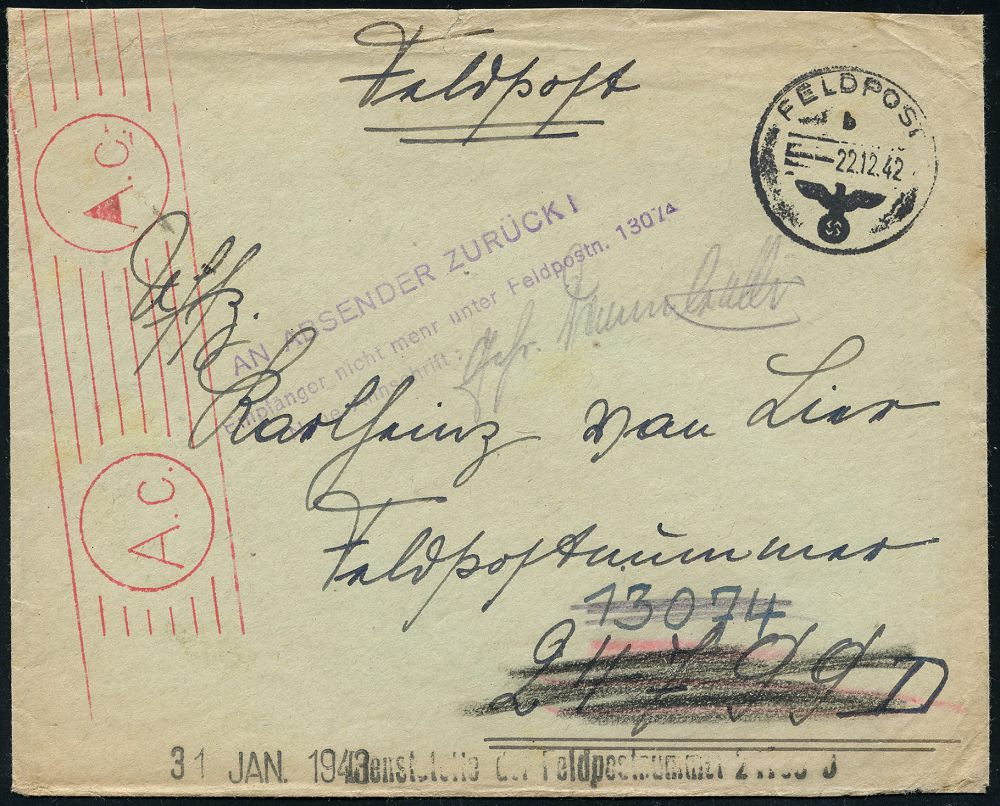 Feldpost
FELDPOST
b
22.12.42
A.C.
AN ABSENDER ZURÜCK!
Empfänger nicht mehr unter Feldpostn. 13074
Uffz.
Karlheinz van Lier
A.C.
Feldpostnummer
13074
31 JAN. 1943 Dienststelle der Feldpostnummer